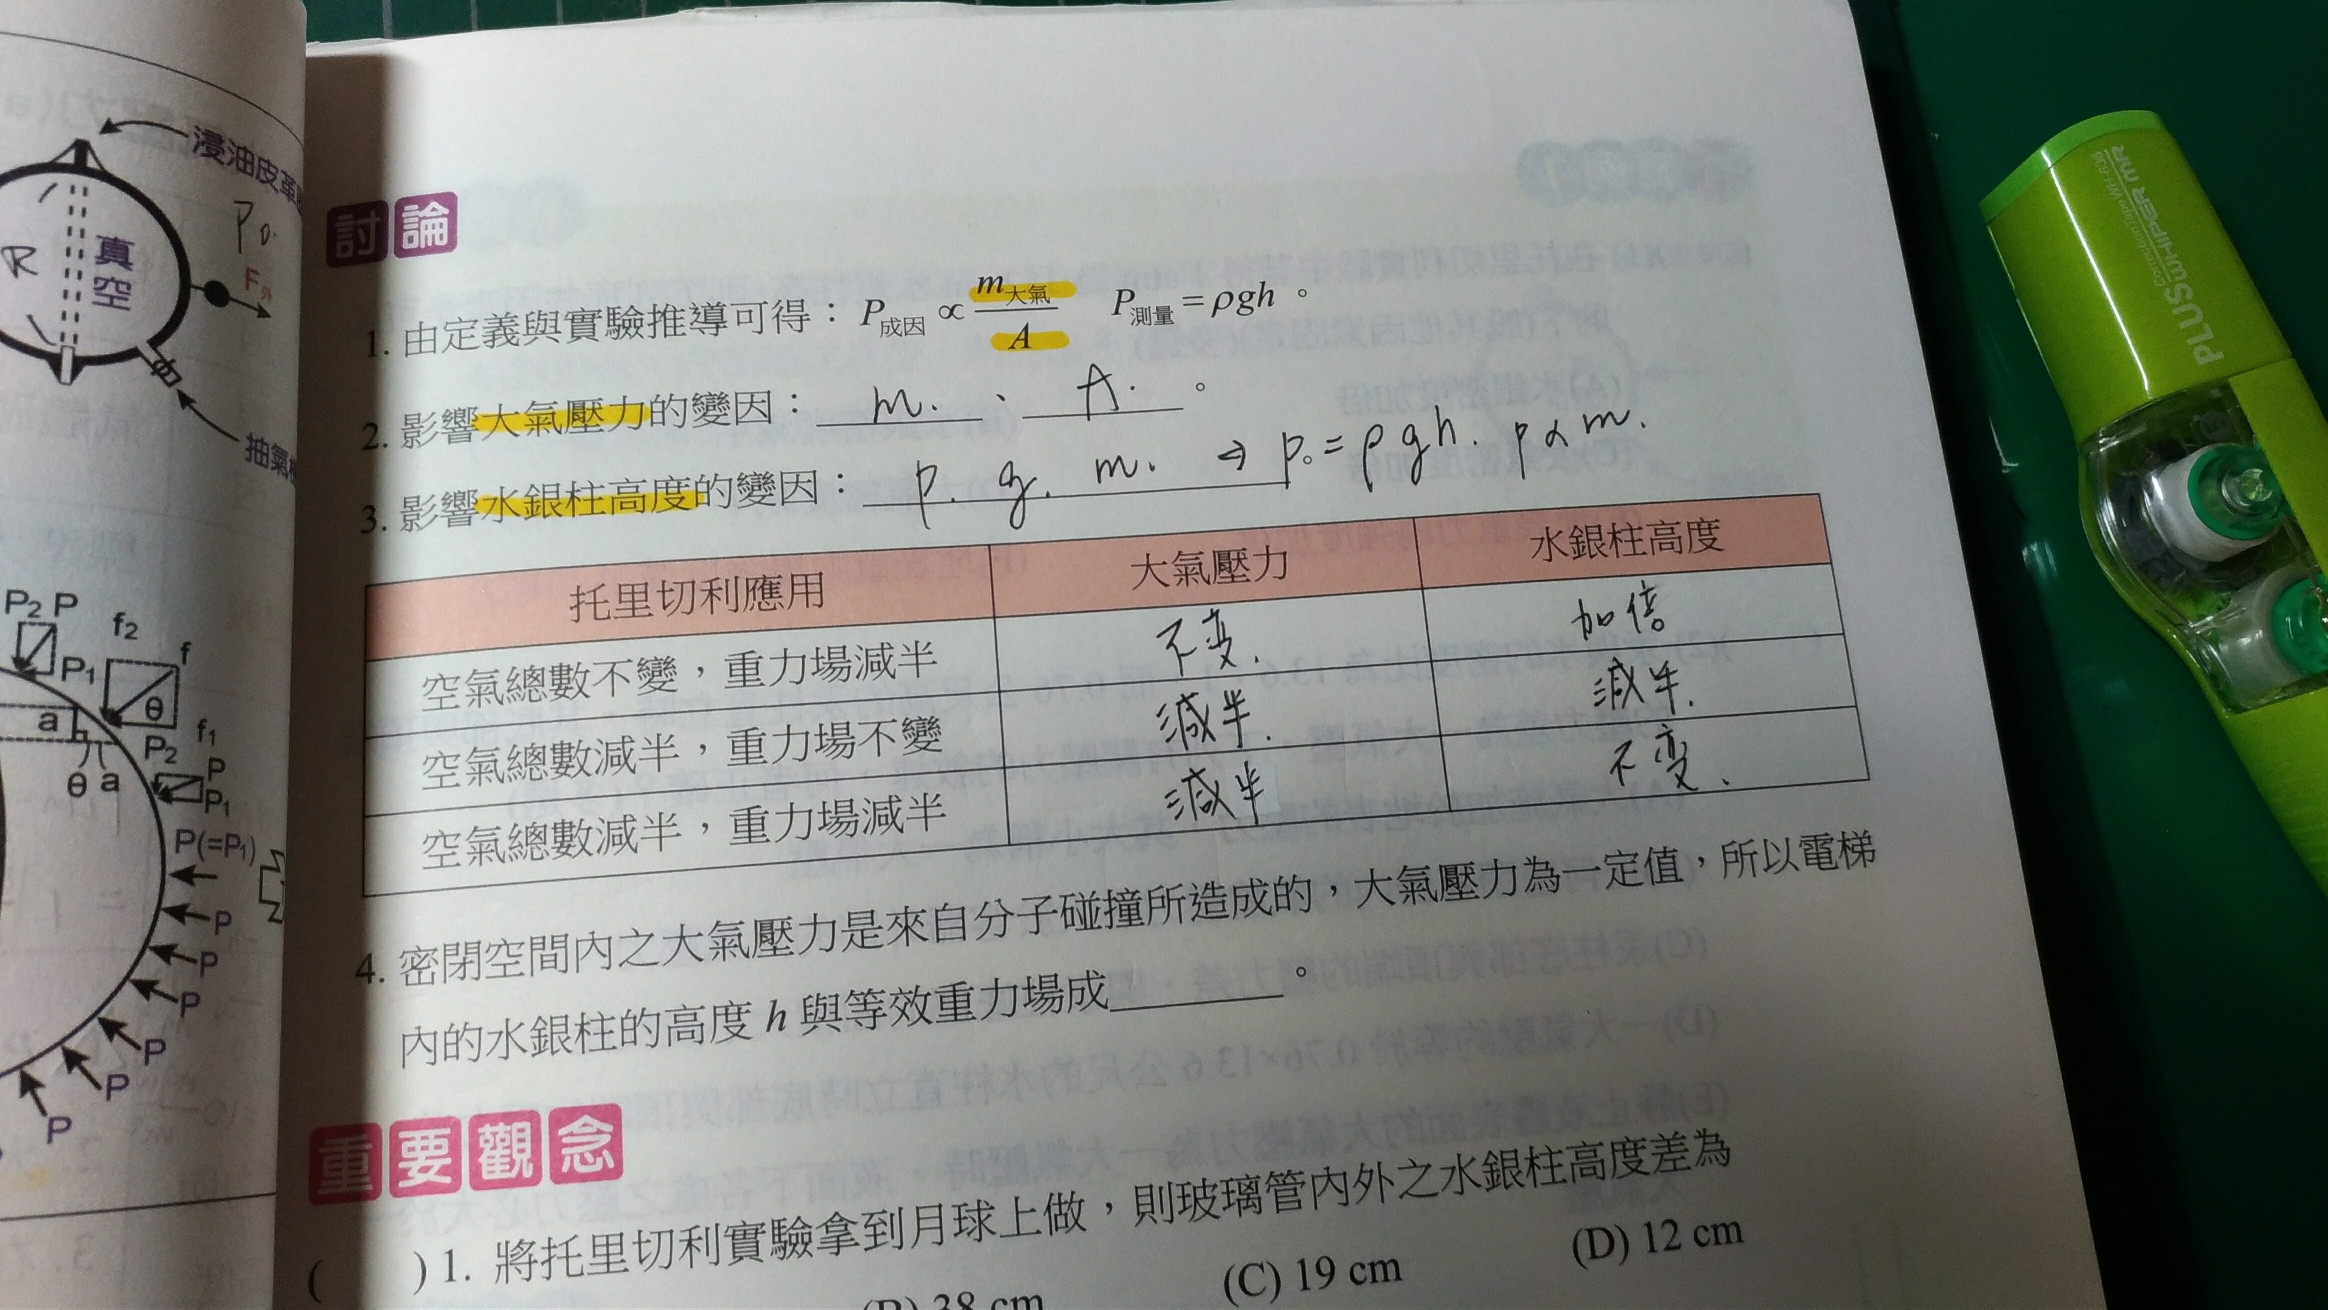 浸油皮革
P0.
R
真空
F外
抽氣
P2 P
P1
f2
f
a
θ
P2
f1
P
θ a
P1
P(=P1)
P
P
P
P
P
P
P
討論
1. 由定義與實驗推導可得：P成因 ∝ m大氣/A P測量 = ρgh。
2. 影響大氣壓力的變因： m. 、 A. 。
3. 影響水銀柱高度的變因： ρ. g. m. ⇒ P0 = ρgh. P∝m.
托里切利應用 大氣壓力 水銀柱高度
空氣總數不變，重力場減半 不变. 加倍
空氣總數減半，重力場不變 減半. 減半.
空氣總數減半，重力場減半 減半 不变、
4. 密閉空間內之大氣壓力是來自分子碰撞所造成的，大氣壓力為一定值，所以電梯
內的水銀柱的高度 h 與等效重力場成＿＿＿＿。
重要觀念
( ) 1. 將托里切利實驗拿到月球上做，則玻璃管內外之水銀柱高度差為
(B) 38 cm (C) 19 cm (D) 12 cm
PLUS WHIPER MR